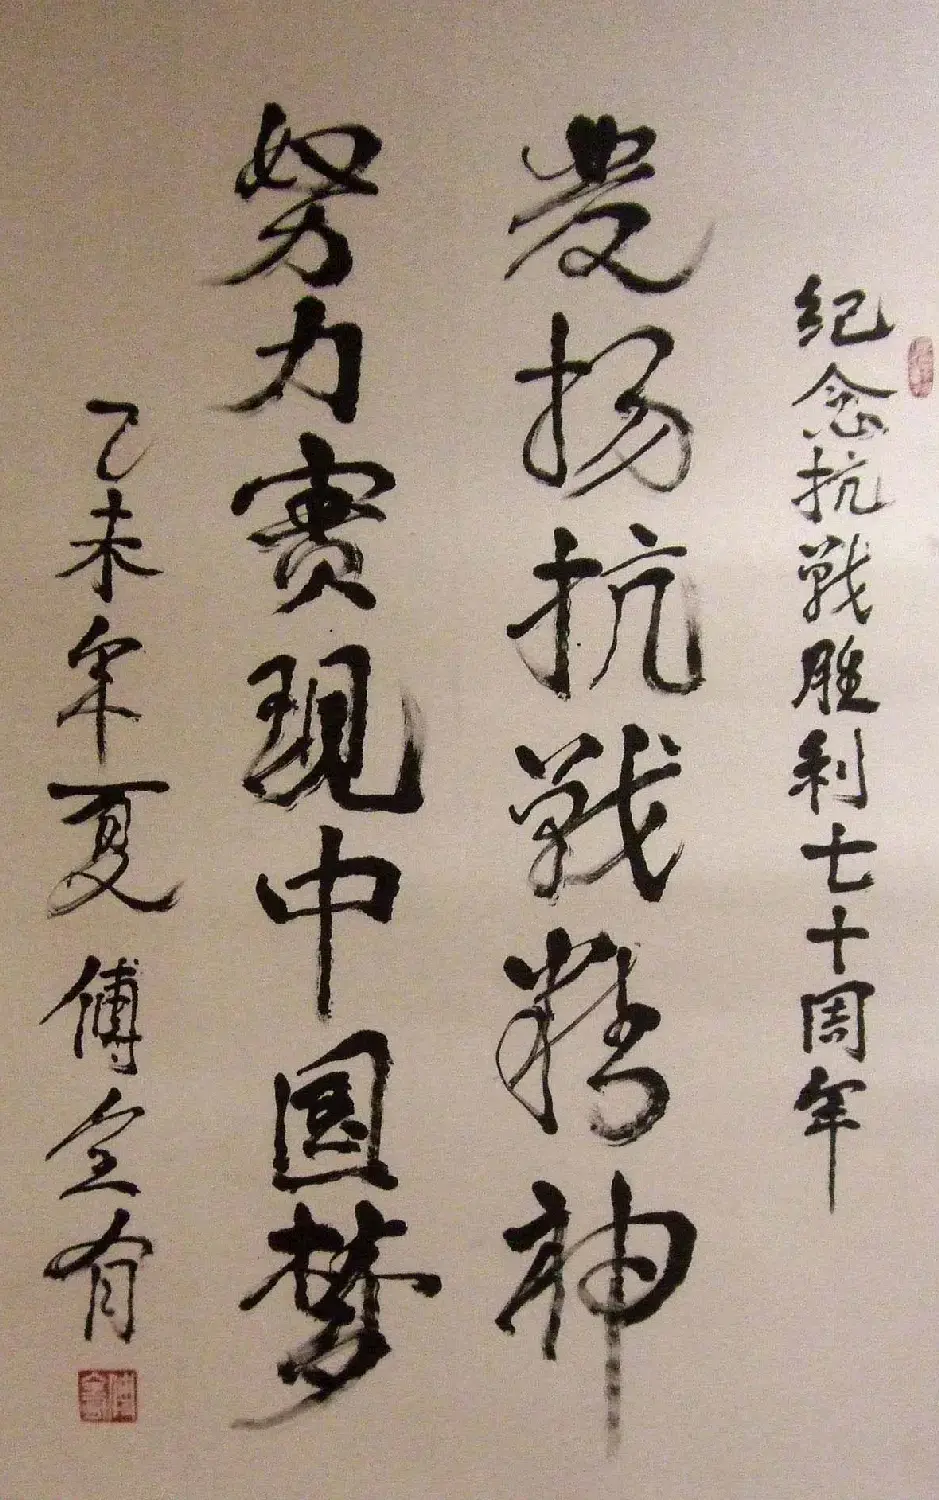 纪念抗战胜利七十周年
发扬抗战精神
努力實现中国梦
乙未年夏 傅全有